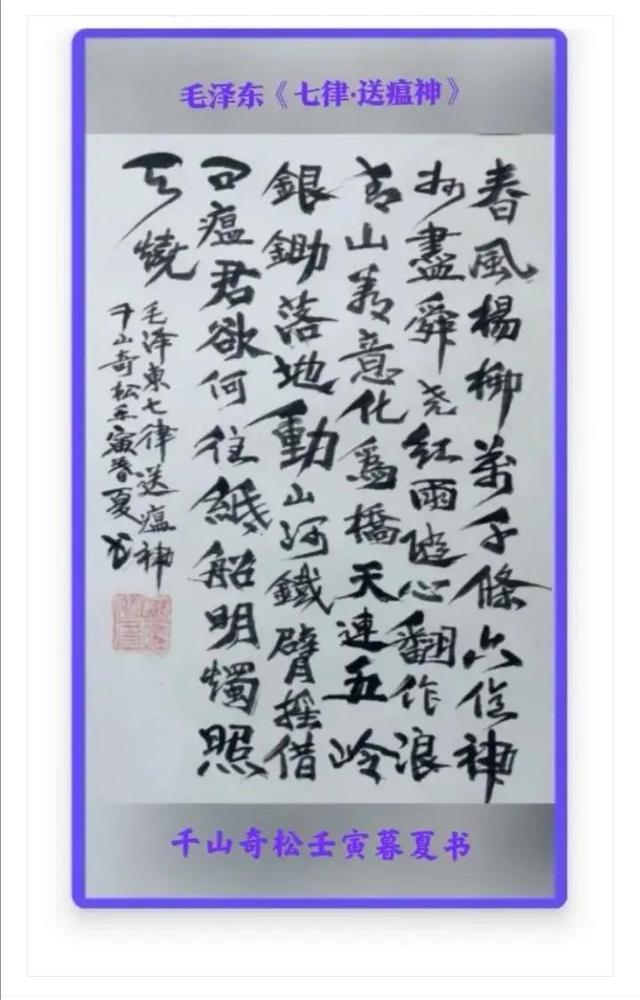 毛泽东《七律·送瘟神》
春風楊柳萬千條六億神
州盡舜尧紅雨隨心翻作浪
青山着意化爲橋天連五岭
銀鋤落地動山河鐵臂摇借
问瘟君欲何往紙船明燭照
天燒
毛泽東七律送瘟神
千山奇松壬寅暮夏书
千山奇松壬寅暮夏书